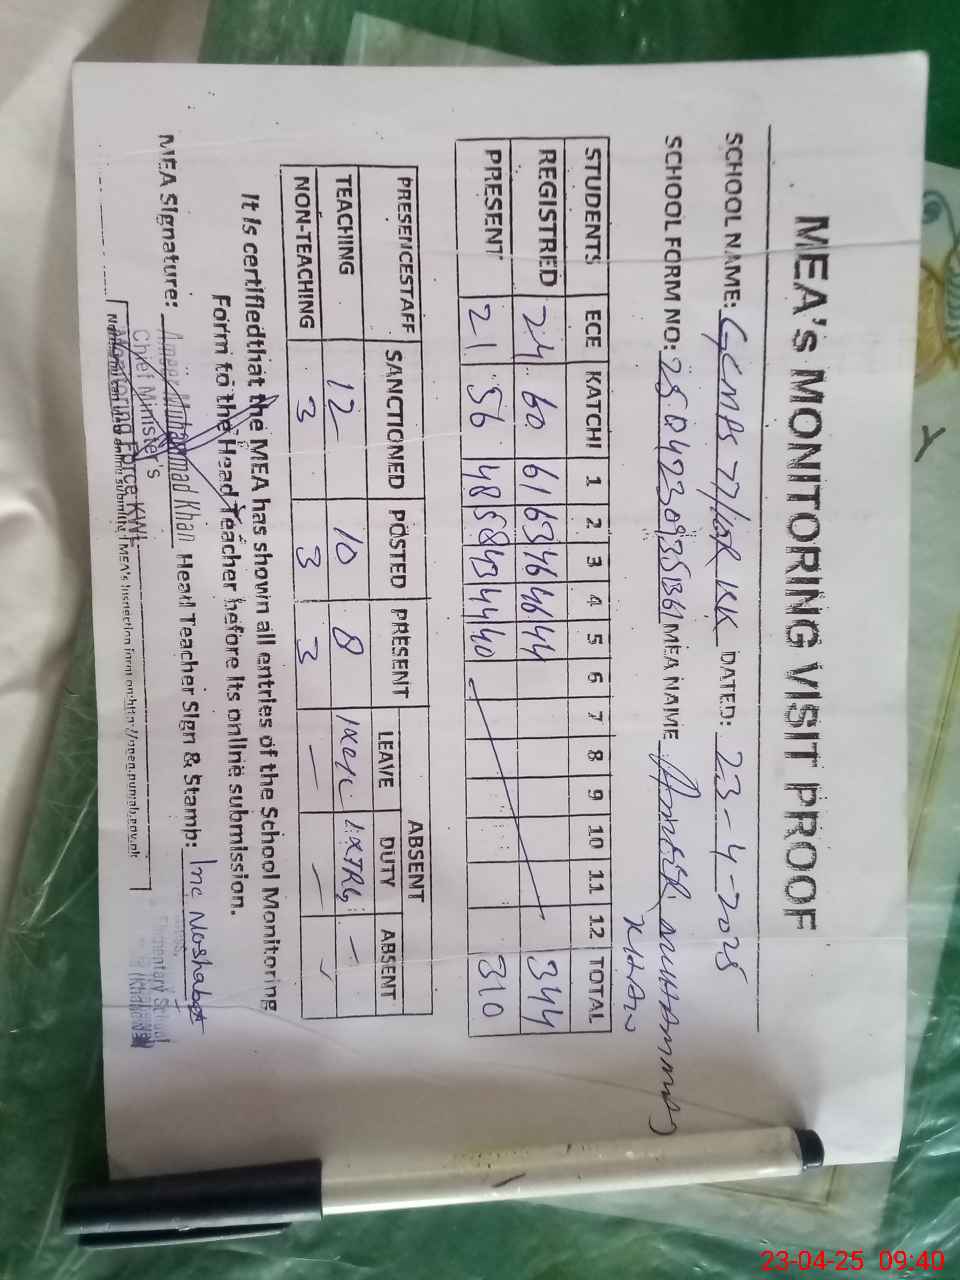 MEA's MONITORING VISIT PROOF
SCHOOL NAME: GCMPS 77/10R KK DATED: 23-4-2025
SCHOOL FORM NO: MEA NAME AMEER MUHAMMAD
KHAN
STUDENTS ECE KATCHI 1 2 3 4 5 6 7 8 9 10 11 12 TOTAL
REGISTRED 24 60 61 63 46 46 44 344
PRESENT 21 56 48 58 43 44 40 310
PRESENCESTAFF SANCTIONED POSTED PRESENT ABSENT
LEAVE DUTY ABSENT
TEACHING 12 10 8 –
NON-TEACHING 3 3 3 – –
It is certifiedthat the MEA has shown all entries of the School Monitoring
Form to the Head Teacher before its online submission.
MEA Signature: Ameer Muhammad Khan Head Teacher Sign & Stamp: Inc Noshabat
Chief Minister's
Monitoring Force KWL
Elementary School
MEA's Inspection form on http://open.punjab.gov.pk
23-04-25 09:40